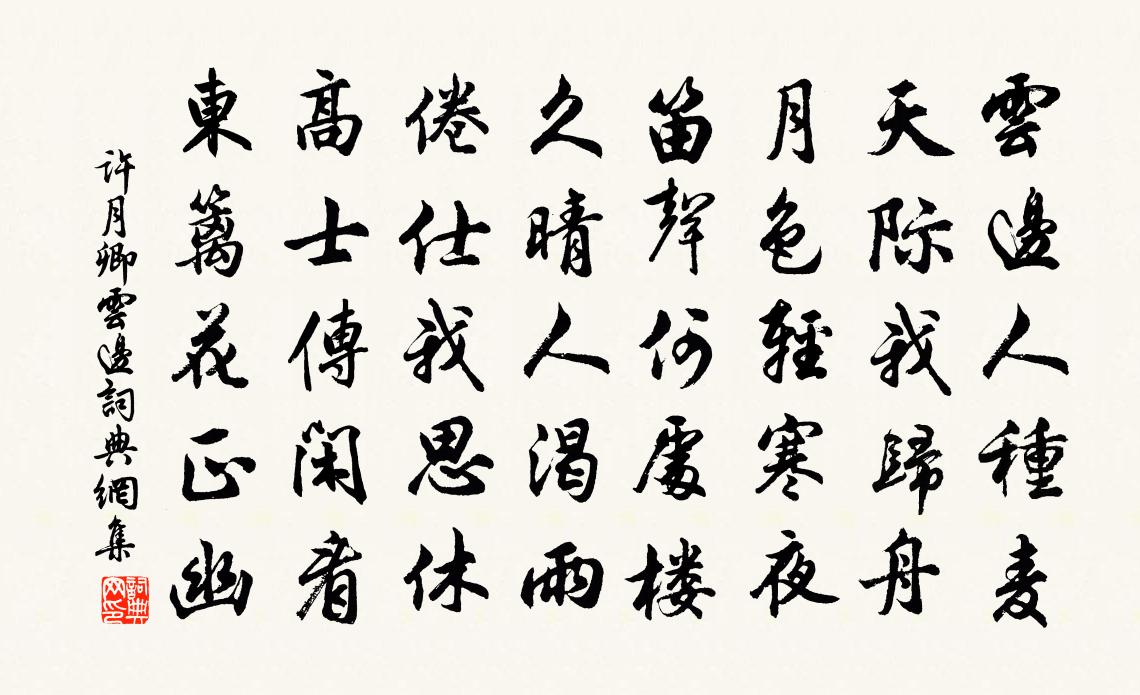 雲邊人種麦
天际我歸舟
月色輕寒夜
笛聲何處楼
久晴人渴雨
倦仕我思休
髙士傳閑看
東籬花正幽
許月卿雲邊詞典網集
詞典網印